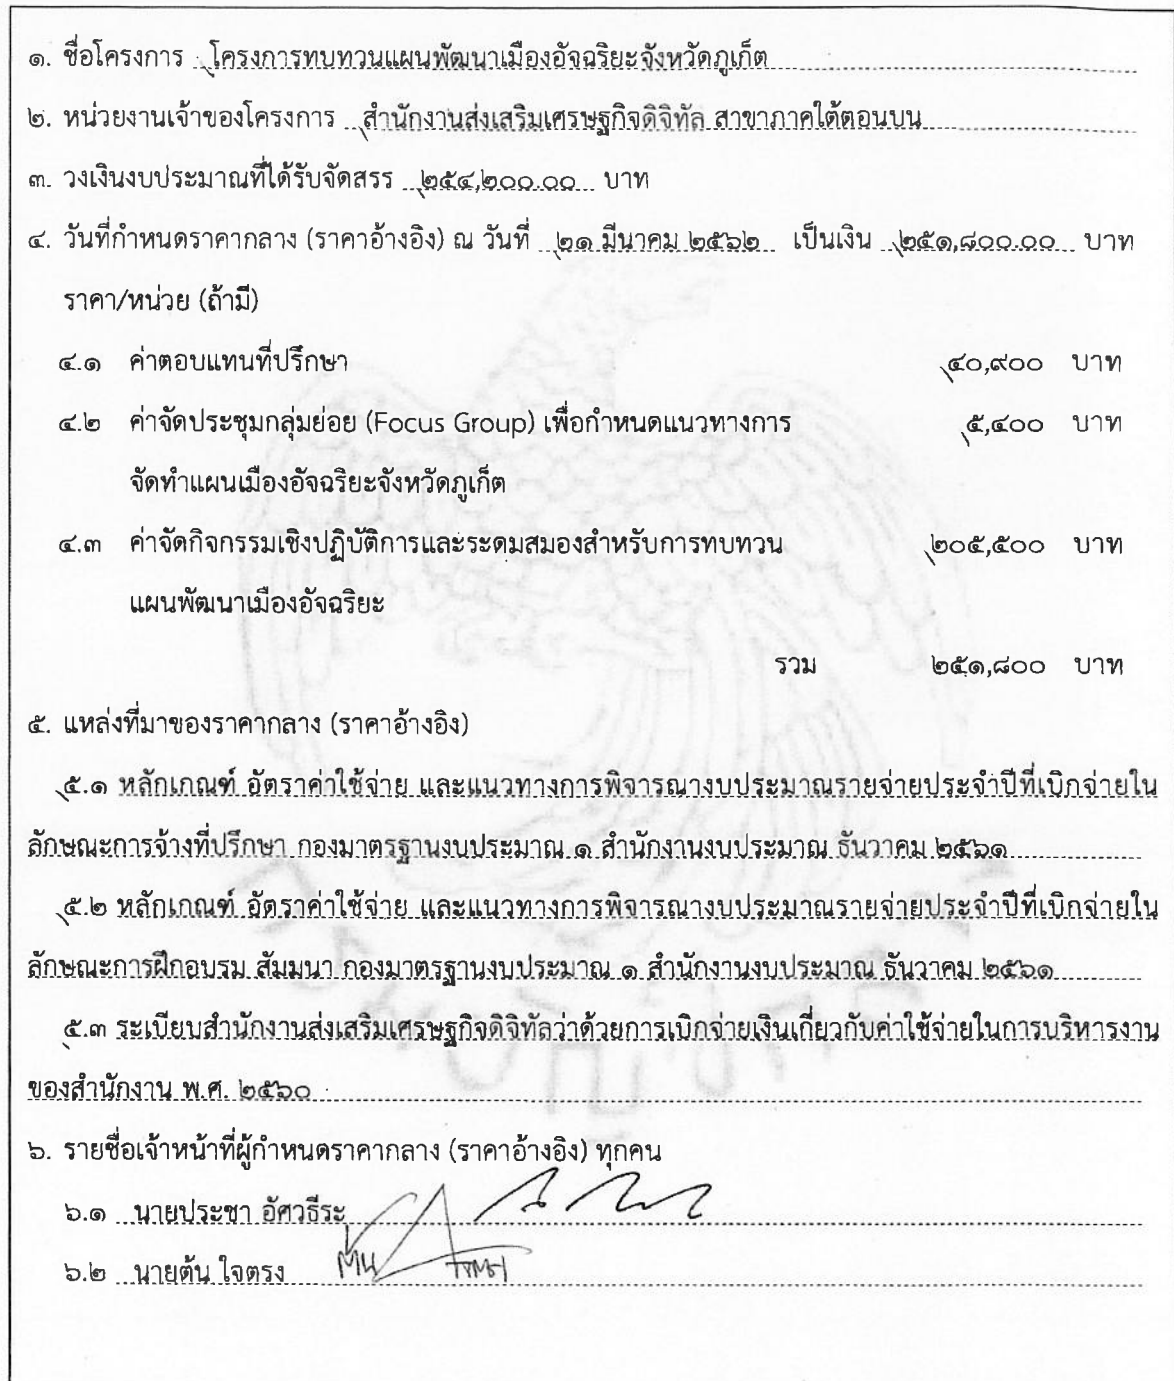 ๑. ชื่อโครงการ โครงการทบทวนแผนพัฒนาเมืองอัจฉริยะจังหวัดภูเก็ต
๒. หน่วยงานเจ้าของโครงการ สำนักงานส่งเสริมเศรษฐกิจดิจิทัล สาขาภาคใต้ตอนบน
๓. วงเงินงบประมาณที่ได้รับจัดสรร ๒๕๔,๒๐๐.๐๐ บาท
๔. วันที่กำหนดราคากลาง (ราคาอ้างอิง) ณ วันที่ ๒๑ มีนาคม ๒๕๖๒ เป็นเงิน ๒๕๑,๘๐๐.๐๐ บาท
ราคา/หน่วย (ถ้ามี)
๔.๑ ค่าตอบแทนที่ปรึกษา ๔๐,๙๐๐ บาท
๔.๒ ค่าจัดประชุมกลุ่มย่อย (Focus Group) เพื่อกำหนดแนวทางการ ๕,๔๐๐ บาท
จัดทำแผนเมืองอัจฉริยะจังหวัดภูเก็ต
๔.๓ ค่าจัดกิจกรรมเชิงปฏิบัติการและระดมสมองสำหรับการทบทวน ๒๐๕,๕๐๐ บาท
แผนพัฒนาเมืองอัจฉริยะ
รวม ๒๕๑,๘๐๐ บาท
๕. แหล่งที่มาของราคากลาง (ราคาอ้างอิง)
๕.๑ หลักเกณฑ์ อัตราค่าใช้จ่าย และแนวทางการพิจารณางบประมาณรายจ่ายประจำปีที่เบิกจ่ายใน
ลักษณะการจ้างที่ปรึกษา กองมาตรฐานงบประมาณ ๑ สำนักงานงบประมาณ ธันวาคม ๒๕๖๑
๕.๒ หลักเกณฑ์ อัตราค่าใช้จ่าย และแนวทางการพิจารณางบประมาณรายจ่ายประจำปีที่เบิกจ่ายใน
ลักษณะการฝึกอบรม สัมมนา กองมาตรฐานงบประมาณ ๑ สำนักงานงบประมาณ ธันวาคม ๒๕๖๑
๕.๓ ระเบียบสำนักงานส่งเสริมเศรษฐกิจดิจิทัลว่าด้วยการเบิกจ่ายเงินเกี่ยวกับค่าใช้จ่ายในการบริหารงาน
ของสำนักงาน พ.ศ. ๒๕๖๐
๖. รายชื่อเจ้าหน้าที่ผู้กำหนดราคากลาง (ราคาอ้างอิง) ทุกคน
๖.๑ นายประชา อัศวธีระ
๖.๒ นายต้น ใจตรง